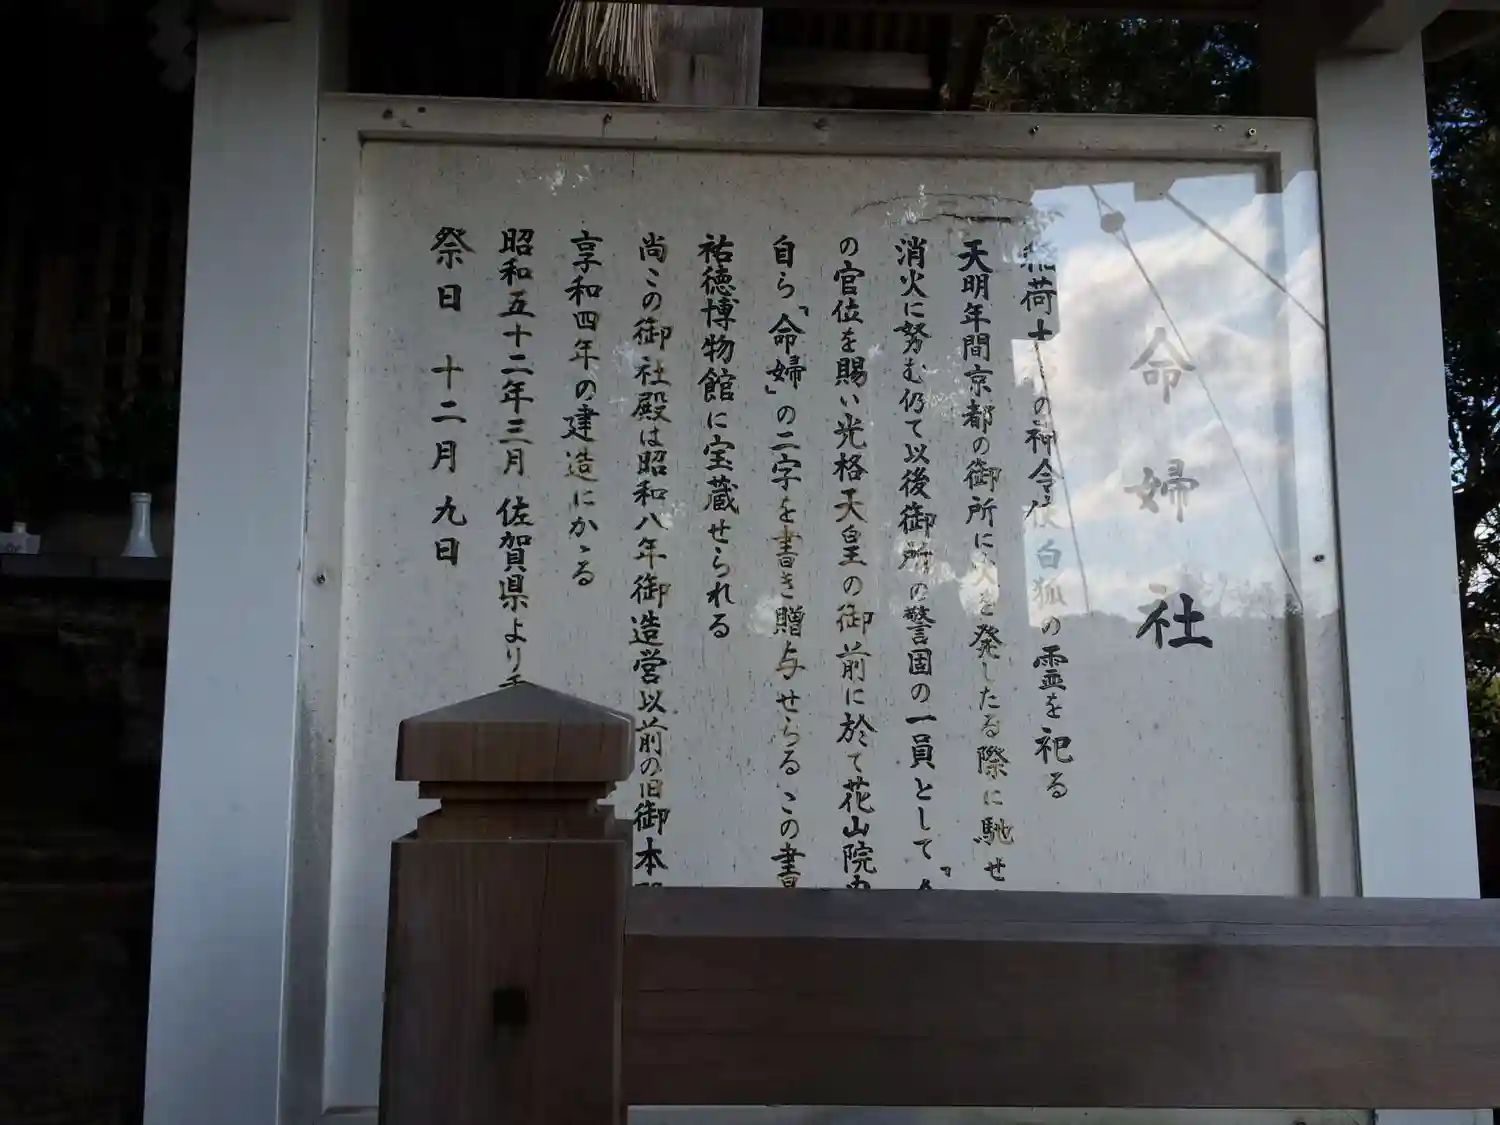 命婦社
稲荷大神の神令使白狐の霊を祀る
天明年間京都の御所に火を発したる際に馳せ
消火に努む仍て以後御所の警固の一員として『命
の官位を賜い光格天皇の御前に於て花山院内
自ら「命婦」の二字を書き贈与せらる この書
祐徳博物館に宝蔵せられる
尚この御社殿は昭和八年御造営以前の旧御本殿
享和四年の建造にかゝる
昭和五十二年三月 佐賀県より
祭日 十二月九日